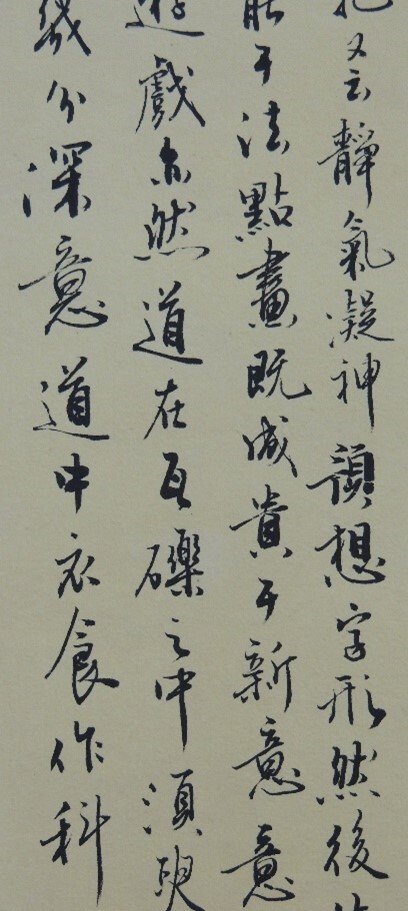 又云靜氣凝神預想字形然後
于法點畫既成貴于新意意
遊戲亦然道在瓦礫之中須臾
幾分深意道中衣食作科